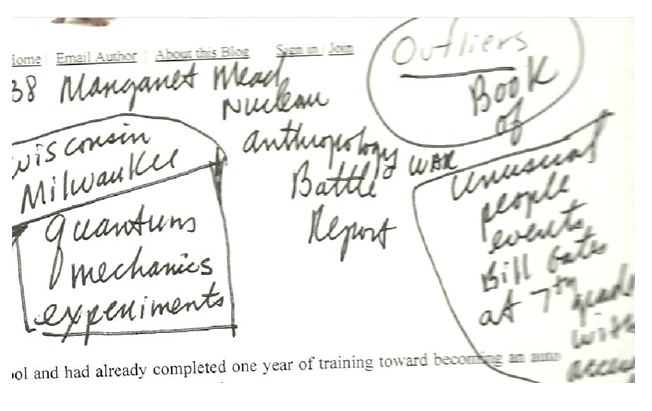 Home | Email Author | About this Blog Sign in | Join
38 Manganet Mead
Nuclear
anthropology
Battle WAR
Report
Wisconsin
Milwaukee
quantums
mechanics
experiments
Outliers
Book
of
Unusual
people
events
Bill Gates
at 7th grade
with
access
ool and had already completed one year of training toward becoming an auto